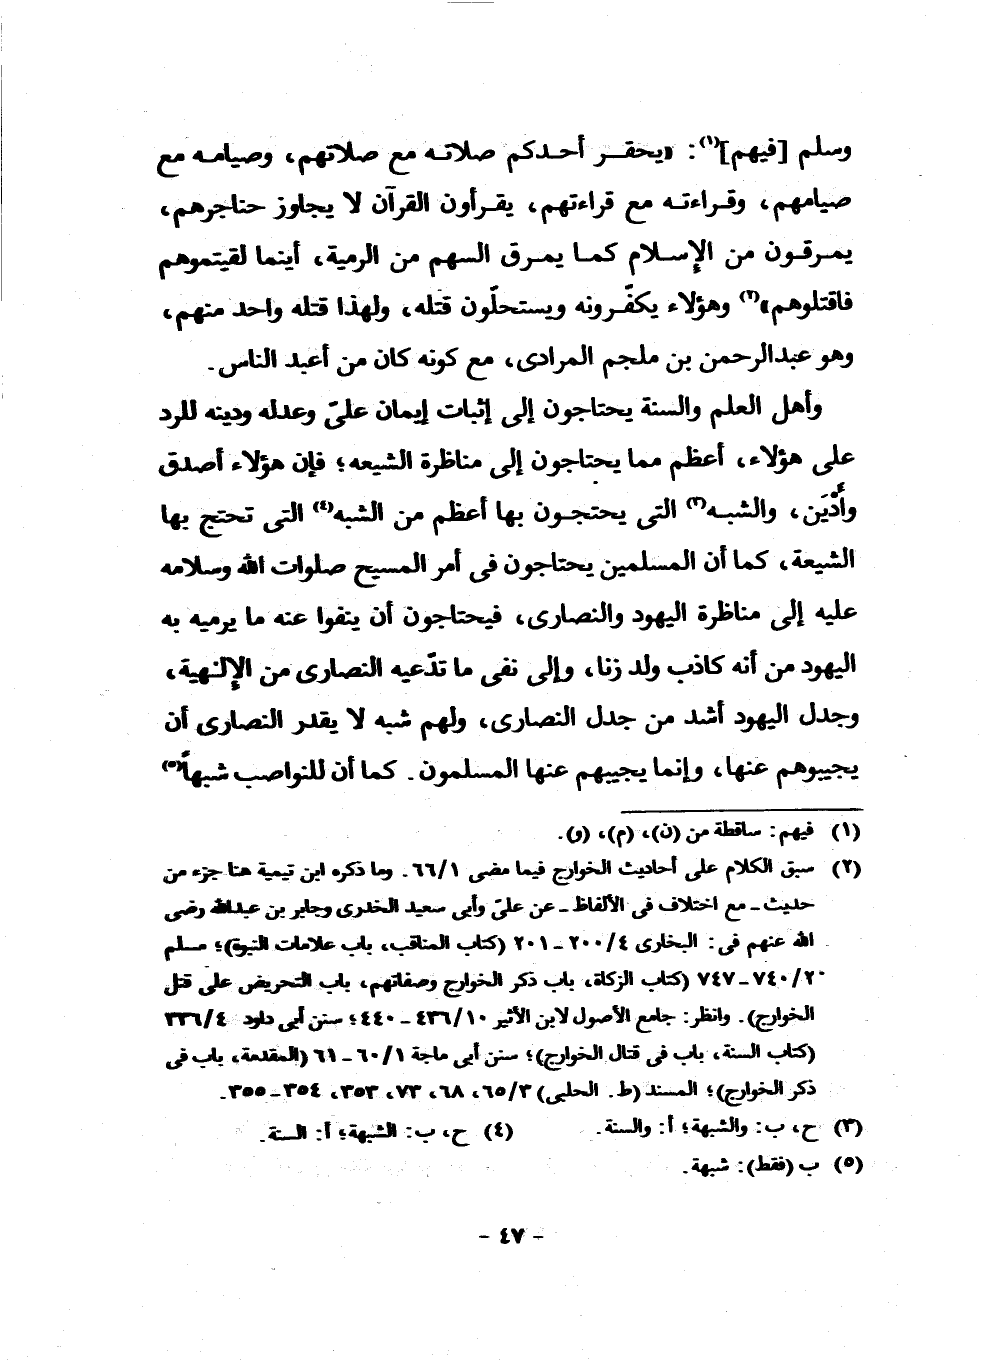 وسلم [فيهم]⁽¹⁾: «يحقر أحدكم صلاته مع صلاتهم، وصيامه مع
صيامهم، وقراءته مع قراءتهم، يقرأون القرآن لا يجاوز حناجرهم،
يمرقون من الإسلام كما يمرق السهم من الرمية، أينما لقيتموهم
فاقتلوهم»⁽٢⁾ وهؤلاء يكفّرونه ويستحلّون قتله، ولهذا قتله واحد منهم،
وهو عبدالرحمن بن ملجم المرادى، مع كونه كان من أعبد الناس.
وأهل العلم والسنة يحتاجون إلى إثبات إيمان علىّ وعدله ودينه للرد
على هؤلاء، أعظم مما يحتاجون إلى مناظرة الشيعه؛ فإن هؤلاء أصدق
وأَدْيَن، والشبه⁽٣⁾ التى يحتجون بها أعظم من الشبه⁽٤⁾ التى تحتج بها
الشيعة، كما أن المسلمين يحتاجون فى أمر المسيح صلوات الله وسلامه
عليه إلى مناظرة اليهود والنصارى، فيحتاجون أن ينفوا عنه ما يرميه به
اليهود من أنه كاذب ولد زنا، وإلى نفى ما تدّعيه النصارى من الإلٰهية،
وجدل اليهود أشد من جدل النصارى، ولهم شبه لا يقدر النصارى أن
يجيبوهم عنها، وإنما يجيبهم عنها المسلمون. كما أن للنواصب شبهاً⁽٥⁾
(١) فيهم: ساقطة من (ن)، (م)، (و).
(٢) سبق الكلام على أحاديث الخوارج فيما مضى ٦٦/١. وما ذكره ابن تيمية هنا جزء من
حديث ـ مع اختلاف فى الألفاظ ـ عن علىّ وأبى سعيد الخدرى وجابر بن عبدالله رضى
الله عنهم فى: البخارى ٢٠٠/٤ ـ ٢٠١ (كتاب المناقب، باب علامات النبوة)؛ مسلم
٧٤٠/٢ ـ ٧٤٧ (كتاب الزكاة، باب ذكر الخوارج وصفاتهم، باب التحريض على قتل
الخوارج). وانظر: جامع الأصول لابن الأثير ٤٣٦/١٠ ـ ٤٤٠؛ سنن أبى داود ٣٣٦/٤
(كتاب السنة، باب فى قتال الخوارج)؛ سنن أبى ماجة ٦٠/١ ـ ٦١ (المقدمة، باب فى
ذكر الخوارج)؛ المسند (ط. الحلبى) ٦٥/٣، ٦٨، ٧٣، ٣٥٣، ٣٥٤ ـ ٣٥٥.
(٣) ح، ب: والشبهة؛ أ: والسنة. (٤) ح، ب: الشبهة؛ أ: السنة.
(٥) ب (فقط): شبهة.
- ٤٧ -